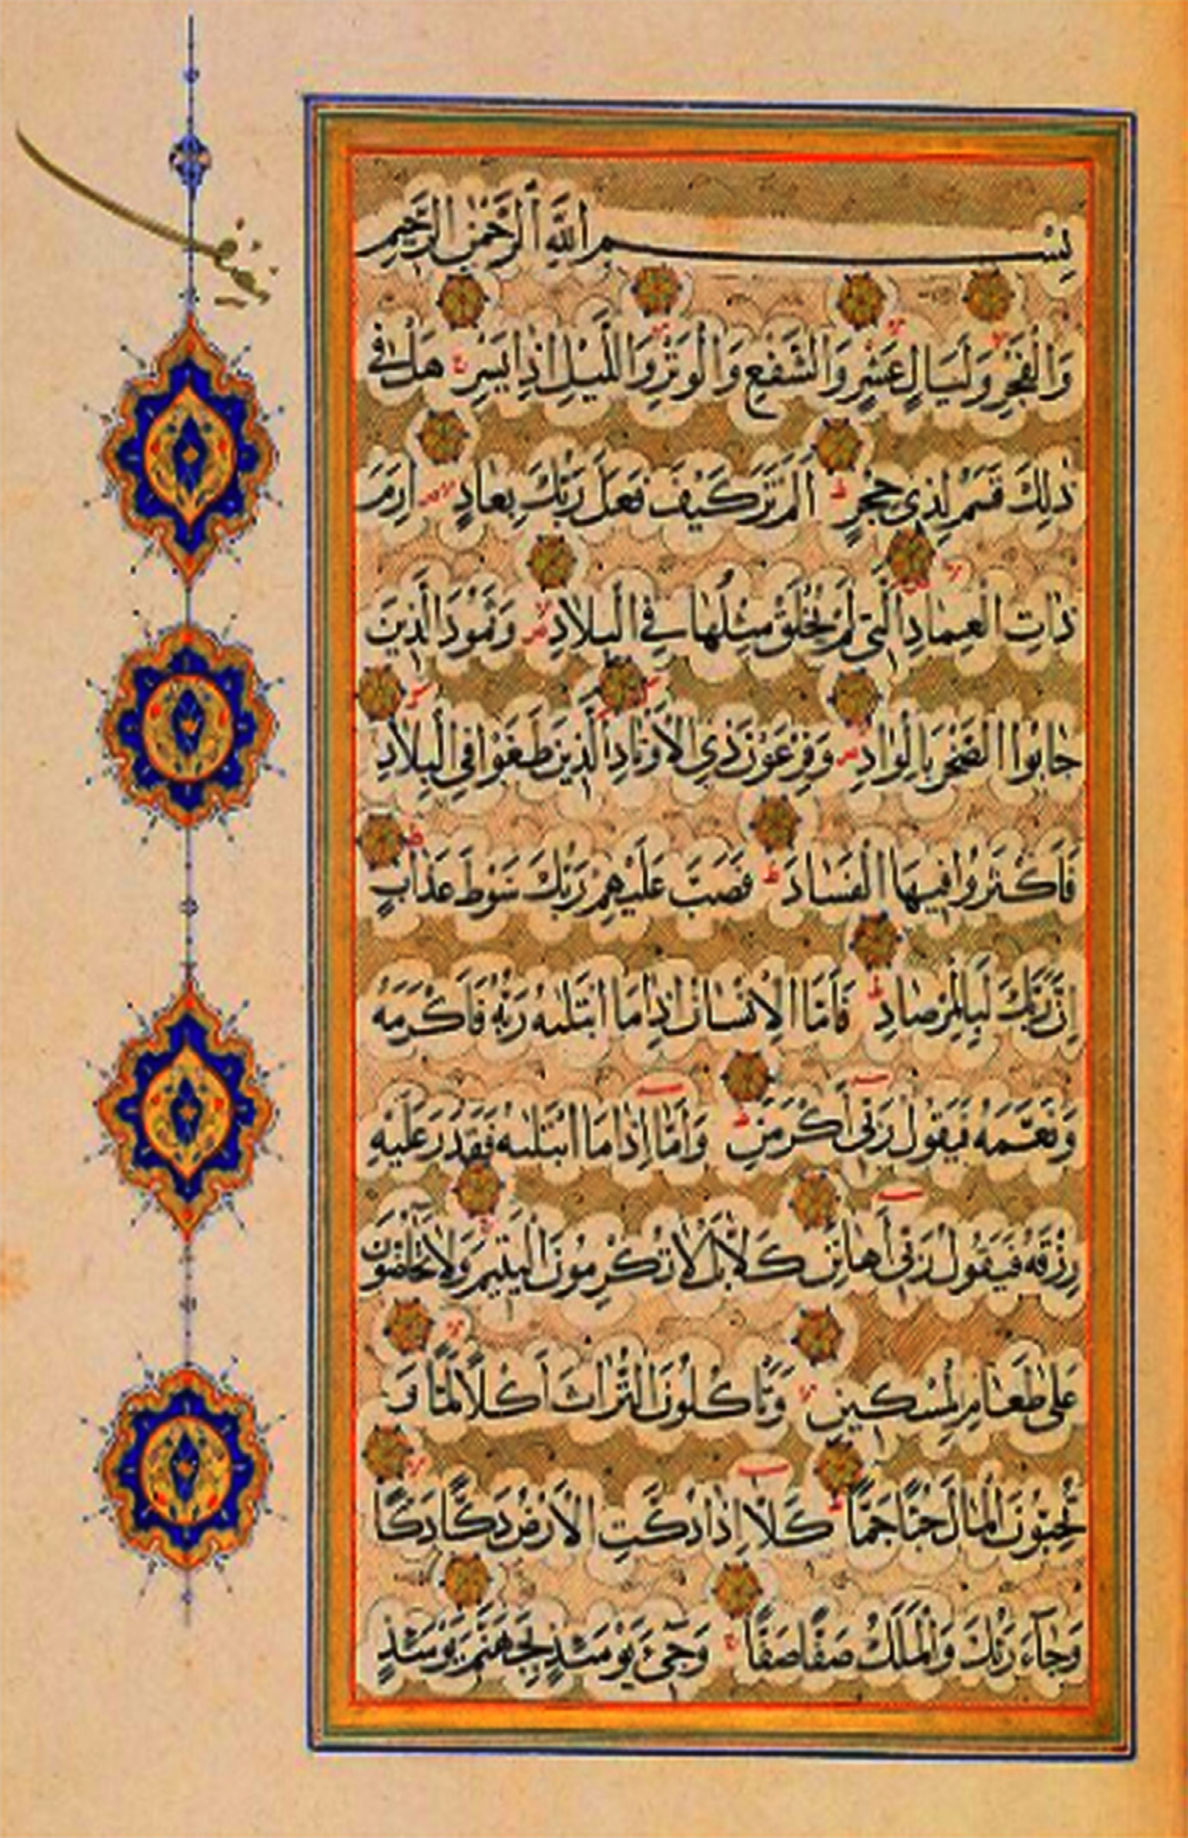 بِسْمِ اللَّهِ الرَّحْمٰنِ الرَّحِيمِ
وَالْفَجْرِ وَلَيَالٍ عَشْرٍ وَالشَّفْعِ وَالْوَتْرِ وَاللَّيْلِ اِذَا يَسْرِ هَلْ فِي
ذٰلِكَ قَسَمٌ لِذِي حِجْرٍ اَلَمْ تَرَ كَيْفَ فَعَلَ رَبُّكَ بِعَادٍ اِرَمَ
ذَاتِ الْعِمَادِ الَّتِي لَمْ يُخْلَقْ مِثْلُهَا فِي الْبِلَادِ وَثَمُودَ الَّذِينَ
جَابُوا الصَّخْرَ بِالْوَادِ وَفِرْعَوْنَ ذِي الْاَوْتَادِ الَّذِينَ طَغَوْا فِي الْبِلَادِ
فَاَكْثَرُوا فِيهَا الْفَسَادَ فَصَبَّ عَلَيْهِمْ رَبُّكَ سَوْطَ عَذَابٍ
اِنَّ رَبَّكَ لَبِالْمِرْصَادِ فَاَمَّا الْاِنْسَانُ اِذَا مَا ابْتَلٰيهُ رَبُّهُ فَاَكْرَمَهُ
وَنَعَّمَهُ فَيَقُولُ رَبِّي اَكْرَمَنِ وَاَمَّا اِذَا مَا ابْتَلٰيهُ فَقَدَرَ عَلَيْهِ
رِزْقَهُ فَيَقُولُ رَبِّي اَهَانَنِ كَلَّا بَلْ لَا تُكْرِمُونَ الْيَتِيمَ وَلَا تَحَاضُّونَ
عَلٰى طَعَامِ الْمِسْكِينِ وَتَاْكُلُونَ التُّرَاثَ اَكْلًا لَمًّا وَ
تُحِبُّونَ الْمَالَ حُبًّا جَمًّا كَلَّا اِذَا دُكَّتِ الْاَرْضُ دَكًّا دَكًّا
وَجَاءَ رَبُّكَ وَالْمَلَكُ صَفًّا صَفًّا وَجِيءَ يَوْمَئِذٍ بِجَهَنَّمَ يَوْمَئِذٍ